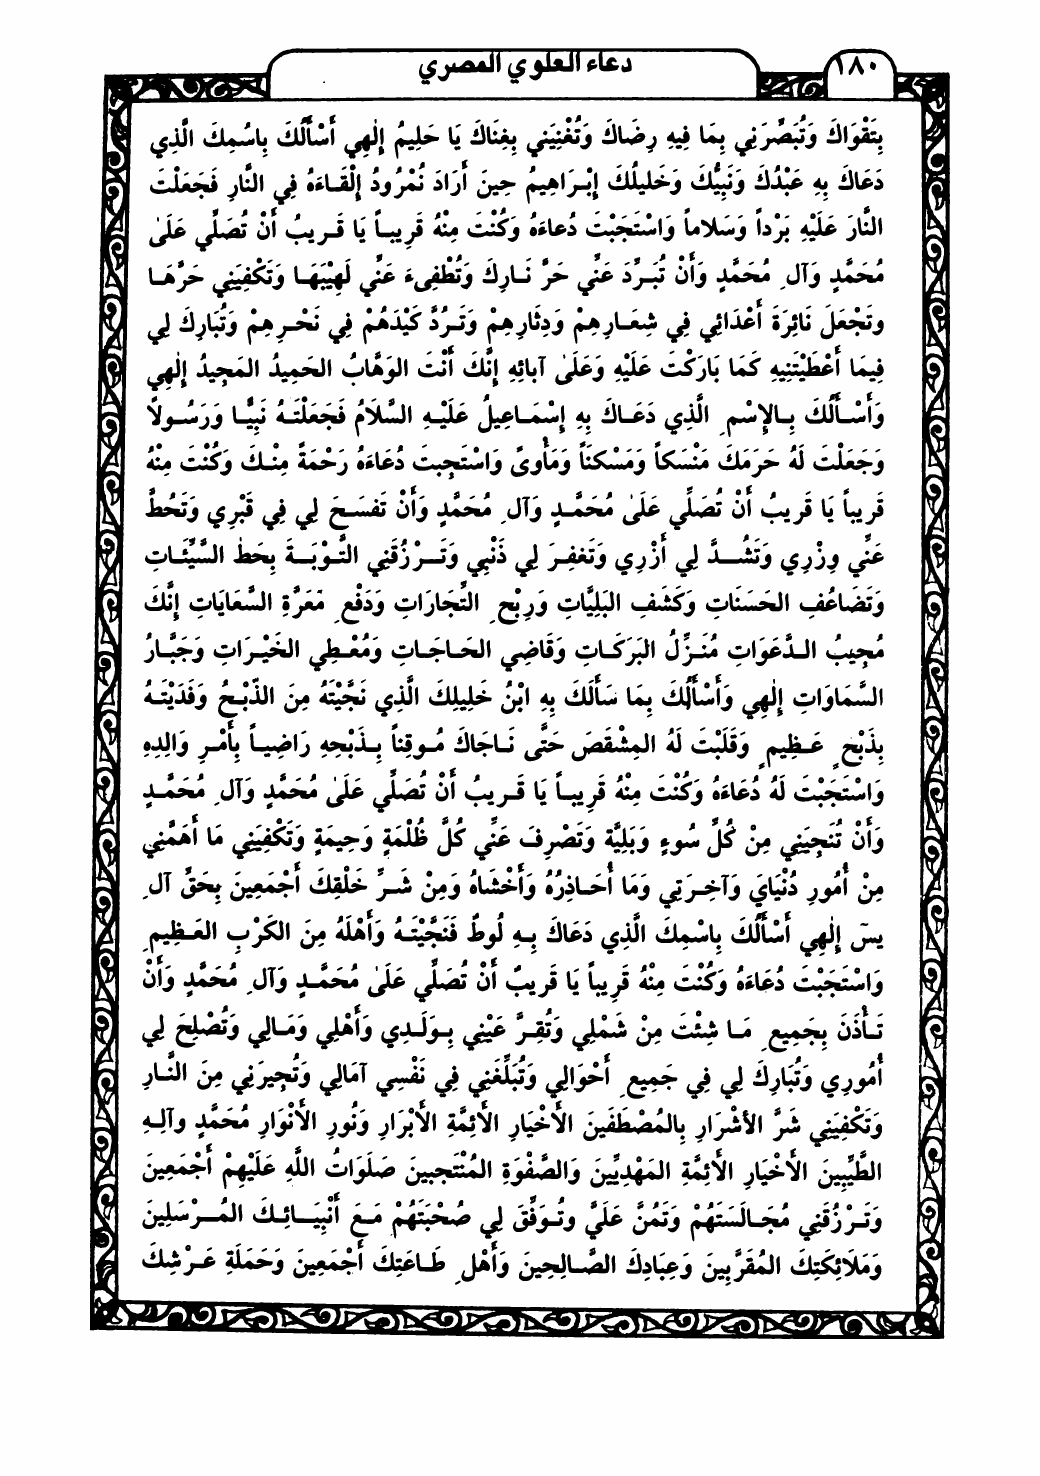 ١٨٠
دعاء العلوي المصري
بِتَقْوَاكَ وَتُبَصِّرَنِي بِمَا فِيهِ رِضَاكَ وَتُغْنِيَنِي بِغِنَاكَ يَا حَلِيمُ إِلٰهِي أَسْأَلُكَ بِاسْمِكَ الَّذِي
دَعَاكَ بِهِ عَبْدُكَ وَنَبِيُّكَ وَخَلِيلُكَ إِبْرَاهِيمُ حِينَ أَرَادَ نُمْرُودُ إِلْقَاءَهُ فِي النَّارِ فَجَعَلْتَ
النَّارَ عَلَيْهِ بَرْداً وَسَلاماً وَاسْتَجَبْتَ دُعاءَهُ وَكُنْتَ مِنْهُ قَرِيباً يَا قَرِيبُ أَنْ تُصَلِّي عَلَىٰ
مُحَمَّدٍ وَآلِ مُحَمَّدٍ وَأَنْ تُبَرِّدَ عَنِّي حَرَّ نَارِكَ وَتُطْفِىءَ عَنِّي لَهِيْبَهَا وَتَكْفِيَنِي حَرَّهَا
وتَجْعَلَ نَائِرَةَ أَعْدَائِي فِي شِعَارِهِمْ وَدِثَارِهِمْ وَتَرُدَّ كَيْدَهُمْ فِي نَحْرِهِمْ وَتُبَارِكَ لِي
فِيمَا أَعْطَيْتَنِيهِ كَمَا بَارَكْتَ عَلَيْهِ وَعَلَىٰ آبائِهِ إِنَّكَ أَنْتَ الوَهَّابُ الحَمِيدُ المَجِيدُ إِلٰهِي
وَأَسْأَلُكَ بِالإِسْمِ الَّذِي دَعَاكَ بِهِ إِسْمَاعِيلُ عَلَيْهِ السَّلَامُ فَجَعَلْتَهُ نَبِيًّا وَرَسُولاً
وَجَعَلْتَ لَهُ حَرَمَكَ مَنْسَكاً وَمَسْكَنَاً وَمَأْوىً وَاسْتَجِبتَ دُعَاءَهُ رَحْمَةً مِنْكَ وَكُنْتَ مِنْهُ
قَرِيباً يَا قَرِيبُ أَنْ تُصَلِّي عَلَىٰ مُحَمَّدٍ وَآلِ مُحَمَّدٍ وَأَنْ تَفسَحَ لِي فِي قَبْرِي وَتَحُطَّ
عَنِّي وِزْرِي وَتَشُدَّ لِي أَزْرِي وَتَغفِرَ لِي ذَنْبِي وَتَرْزُقَنِي التَّوْبَةَ بِحَطِّ السَّيِّئَاتِ
وَتَضَاعُفِ الحَسَنَاتِ وَكَشْفِ البَلِيَّاتِ وَرِبْحِ التِّجَارَاتِ وَدَفْعِ مَعَرَّةِ السَّعَايَاتِ إِنَّكَ
مُجِيبُ الدَّعَوَاتِ مُنَزِّلُ البَرَكَاتِ وَقَاضِي الحَاجَاتِ وَمُعْطِي الخَيْرَاتِ وَجَبَّارُ
السَّمَاوَاتِ إِلٰهِي وَأَسْأَلُكَ بِمَا سَأَلَكَ بِهِ ابْنُ خَلِيلِكَ الَّذِي نَجَّيْتَهُ مِنَ الذَّبْحِ وَفَدَيْتَهُ
بِذَبْحٍ عَظِيمٍ وَقَلَبْتَ لَهُ المِشْقَصَ حَتَّى نَاجَاكَ مُوقِناً بِذَبْحِهِ رَاضِياً بِأَمْرِ وَالِدِهِ
وَاسْتَجَبْتَ لَهُ دُعَاءَهُ وَكُنْتَ مِنْهُ قَرِيباً يَا قَرِيبُ أَنْ تُصَلِّي عَلَىٰ مُحَمَّدٍ وَآلِ مُحَمَّدٍ
وَأَنْ تُنَجِيَنِي مِنْ كُلِّ سُوءٍ وَبَلِيَّةٍ وَتَصْرِفَ عَنِّي كُلَّ ظُلْمَةٍ وَحِيمَةٍ وَتَكْفِيَنِي مَا أَهَمَّنِي
مِنْ أُمُورِ دُنْيَايَ وَآخِرَتِي وَمَا أُحَاذِرُهُ وَأَخْشَاهُ وَمِنْ شَرِّ خَلْقِكَ أَجْمَعِينَ بِحَقِّ آلِ
يسَ إِلٰهِي أَسْأَلُكَ بِاسْمِكَ الَّذِي دَعَاكَ بِهِ لُوطٌ فَنَجَّيْتَهُ وَأَهْلَهُ مِنَ الكَرْبِ العَظِيمِ
وَاسْتَجَبْتَ دُعَاءَهُ وَكُنْتَ مِنْهُ قَرِيباً يَا قَرِيبٌ أَنْ تُصَلِّي عَلَىٰ مُحَمَّدٍ وَآلِ مُحَمَّدٍ وَأَنْ
تَأْذَنَ بِجَمِيعِ مَا شِئْتَ مِنْ شَمْلِي وَتُقِرَّ عَيْنِي بِوَلَدِي وَأَهْلِي وَمَالِي وَتُصْلِحَ لِي
أُمُورِي وَتُبَارِكَ لِي فِي جَمِيعِ أَحْوَالِي وَتُبَلِّغَنِي فِي نَفْسِي آمَالِي وَتُجِيرَنِي مِنَ النَّارِ
وَتَكْفِيَنِي شَرَّ الأَشْرَارِ بِالمُصْطَفَينَ الأَخْيَارِ الأَئِمَّةِ الأَبْرَارِ وَنُورِ الأَنْوَارِ مُحَمَّدٍ وآلِهِ
الطَّيِّبِينَ الأَخْيَارِ الأَئِمَّةِ المَهْدِيِّينَ وَالصَّفْوَةِ المُنْتَجبينَ صَلَوَاتُ اللَّهِ عَلَيْهِمْ أَجْمَعِينَ
وَتَرْزُقَنِي مُجَالَسَتَهُمْ وَتَمُنَّ عَلَيَّ وتُوَفِّقَ لِي صُحْبَتَهُمْ مَعَ أَنْبِيَائِكَ المُرْسَلِينَ
وَمَلَائِكَتِكَ المُقَرَّبِينَ وَعِبَادِكَ الصَّالِحِينَ وَأَهْلِ طَاعَتِكَ أَجْمَعِينَ وَحَمَلَةِ عَرْشِكَ